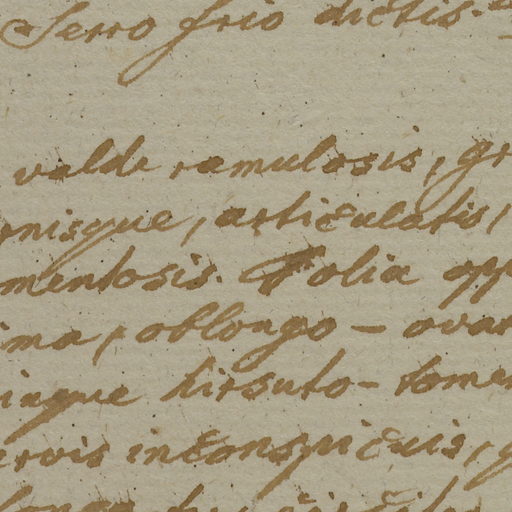 Serro frio dictis.
valde ramulosis, gr
nisque, articulatis,
mentosis. Folia opp
ima, oblongo - ovat
inque hirsuto - tomen
ervis inconspicuis, g